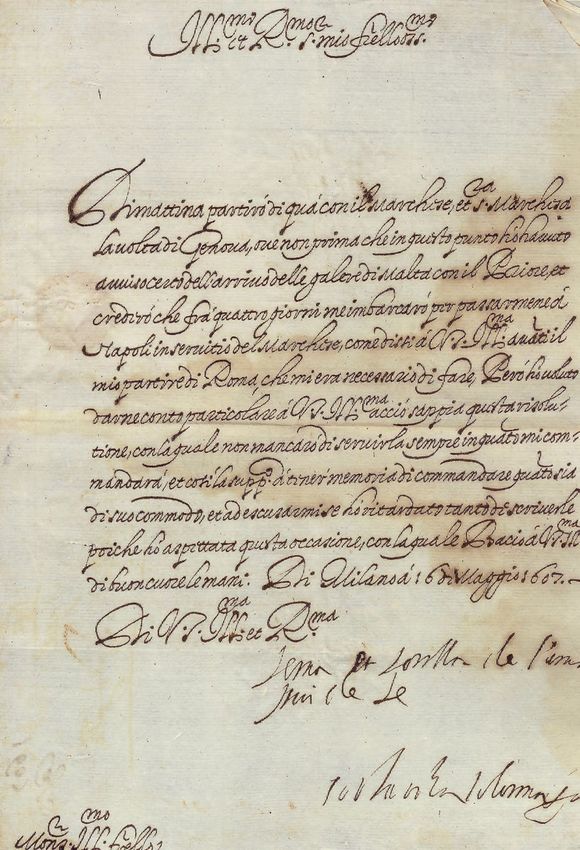 Ill.mo et R.mo S.r mio fr̃ello oss.mo
Di mattina partirò di quà con il Marchese, et S.ra Marchesa
la volta di Genova, ove non prima che in questo punto hò havuto
avviso certo dell'arrivo delle galere di Malta con il Priore, et
crederò che frà quattro giorni me imbarcarò per passarmene à
Napoli in servitio del Marchese, come dissi à V.S. Ill.ma avãti il
mio partire di Roma, che mi era necessario di fare, Però hò voluto
darne conto particolare à V.S. Ill.ma acciò sappia questa risolu-
tione, con la quale non mancarò di servirla sempre in quãto mi com-
mandarà, et così la supp.co à tiner memoria di commandare quãto sia
di suo commodo, et ad escusarmi se hò ritardato tanto di scriverle
poiche hò aspettata questa occasione, con la quale Bacio à V.S. Ill.ma
di buon cuore le mani. Di Milano à 16 di Maggio 1607.
Di V.S. Ill.ma et R.ma
Mons.r Ill.mo fr̃ello